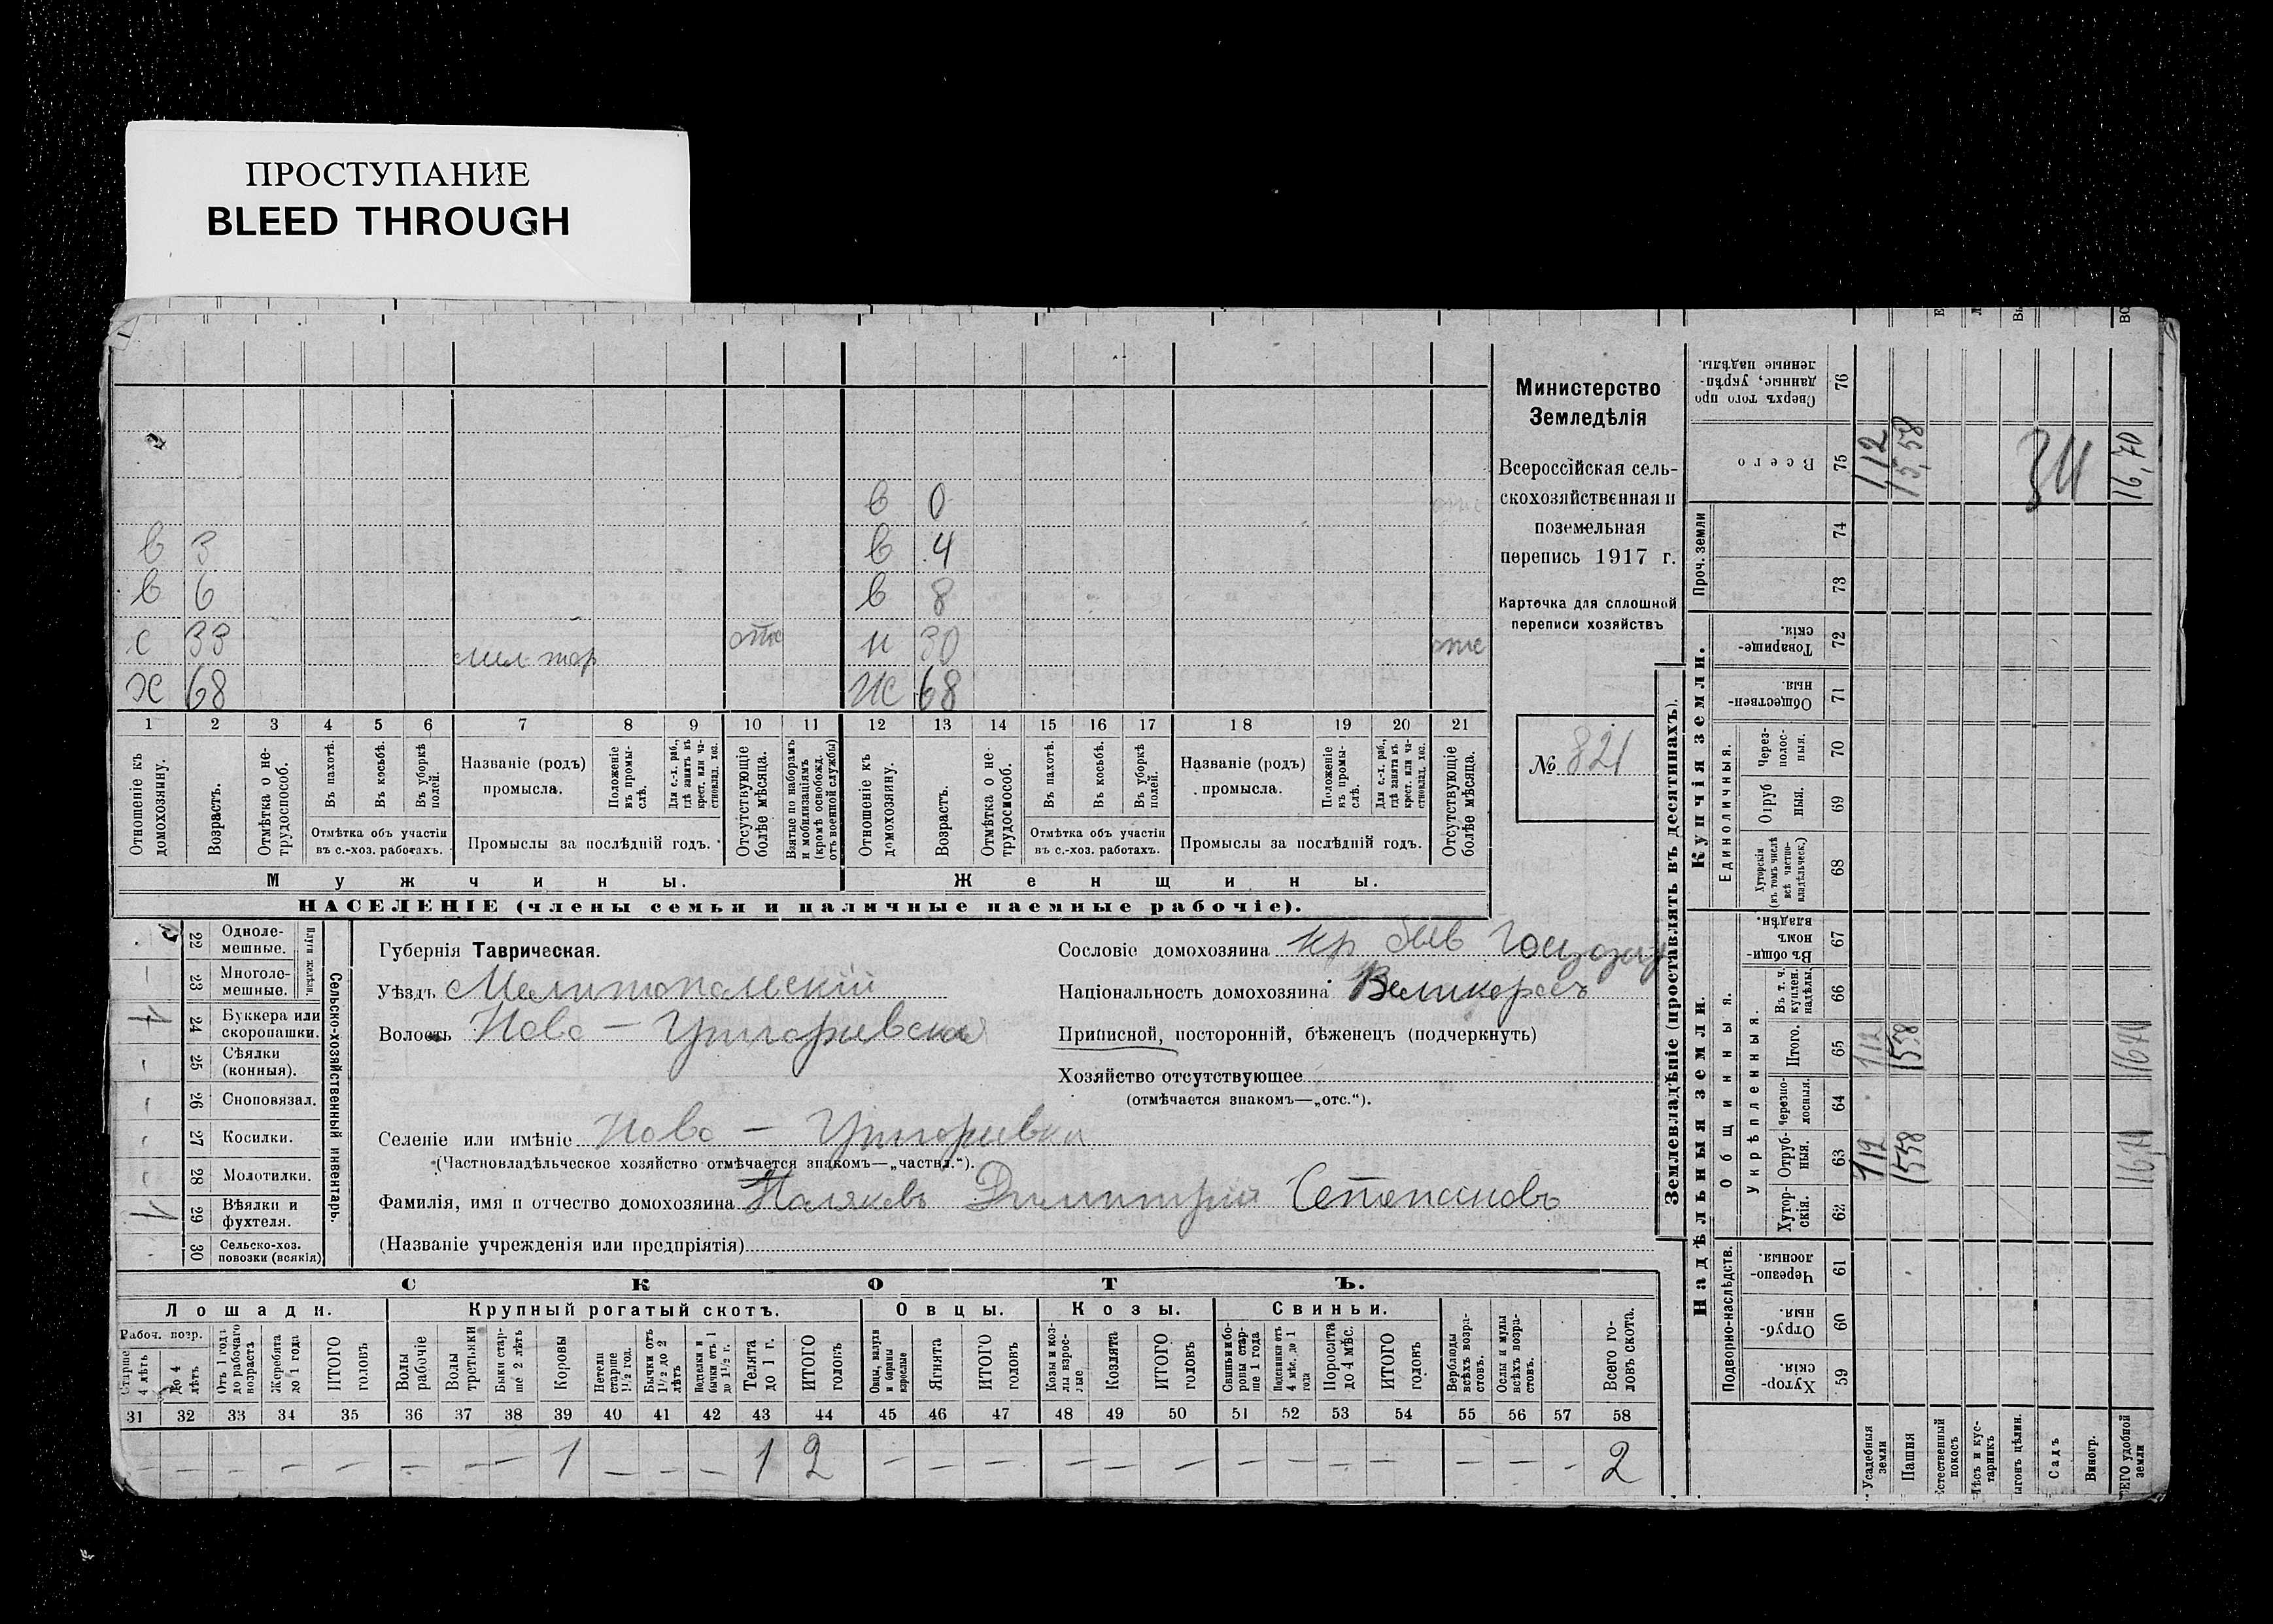 ПРОСТУПАНИЕ
BLEED THROUGH
в 0
в 3 в 4
в 6 в 8
с 33 отс н 30 отс
х 68 ж 68
1 2 3 4 5 6 7 8 9 10 11 12 13 14 15 16 17 18 19 20 21
Отношеніе къ домохозяину.
Возрастъ.
Отмѣтка о не-трудоспособ.
Въ пахотѣ.
Въ косьбѣ.
Въ уборкѣ полей.
Отмѣтка объ участіи въ с.-хоз. работахъ.
Названіе (родъ) промысла.
Положеніе въ промыслѣ.
Для с.-х. раб., гдѣ занятъ въ крест. или частновлад. хоз.
Промыслы за послѣдній годъ.
Отсутствующіе болѣе мѣсяца.
Взятые по наборамъ и мобилизаціямъ (кромѣ освобожд. отъ военной службы)
Отношеніе къ домохозяину.
Возрастъ.
Отмѣтка о не-трудоспособ.
Въ пахотѣ.
Въ косьбѣ.
Въ уборкѣ полей.
Отмѣтка объ участіи въ с.-хоз. работахъ.
Названіе (родъ) промысла.
Положеніе въ промыслѣ.
Для с.-х. раб., гдѣ занята въ крест. или частновлад. хоз.
Промыслы за послѣдній годъ.
Отсутствующіе болѣе мѣсяца.
Мужчины. Женщины.
НАСЕЛЕНІЕ (члены семьи и наличные наемные рабочіе).
Министерство
Земледѣлія
Всероссійская сель-
скохозяйственная и
поземельная
перепись 1917 г.
Карточка для сплошной
переписи хозяйствъ
№ 821
22 Одноле-мешные.
23 Многоле-мешные.
Плуги желѣзн.
24 Буккера или скоропашки.
25 Сѣялки (конныя).
26 Сноповязал.
27 Косилки.
28 Молотилки.
29 Вѣялки и фухтеля.
30 Сельско-хоз. повозки (всякія)
Сельско-хозяйственный инвентарь.
Губернія Таврическая.
Уѣздъ Мелитопольскій
Волость Ново-Григорьевская
Селеніе или имѣніе Ново-Григорьевка
(Частновладѣльческое хозяйство отмѣчается знакомъ—„частвл.“).
Фамилія, имя и отчество домохозяина Поляковъ Димитрій Степановъ
(Названіе учрежденія или предпріятія)
Сословіе домохозяина кр быв Госузар
Національность домохозяина Великороссъ
Приписной, посторонній, бѣженецъ (подчеркнуть)
Хозяйство отсутствующее
(отмѣчается знакомъ—„отс.“).
СКОТЪ.
Лошади. Крупный рогатый скотъ. Овцы. Козы. Свиньи.
Рабоч. возр.
Старше 4 лѣтъ
до 4 лѣтъ
Отъ 1 года до рабочаго возраста
Жеребята до 1 года
ИТОГО головъ
Волы рабочіе
Волы третьяки
Быки стар-ше 2 лѣтъ
Коровы
Нетели старше 1½ год.
Бычки отъ 1½ до 2 лѣтъ
Телки и бычки отъ 1 до 1½ г.
Телята до 1 г.
ИТОГО головъ
Овцы, валухи и бараны взрослые
Ягнята
ИТОГО головъ
Козы и коз-лы взрос-лые
Козлята
ИТОГО головъ
Свиньи и бо-ровы стар-ше 1 года
Подсвинки отъ 4 мѣс. до 1 года
Поросята до 4 мѣс.
ИТОГО головъ
Верблюды всѣхъ возра-стовъ.
Ослы и мулы всѣхъ возра-стовъ.
Всего го-ловъ скота.
31 32 33 34 35 36 37 38 39 40 41 42 43 44 45 46 47 48 49 50 51 52 53 54 55 56 57 58
— — — — — — — — 1 — — — 1 2 — — — — — — — — — — — — — 2
Землевладѣніе (проставлять въ десятинахъ).
Купчія земли.
Надѣльныя земли.
Сверхъ того про-данные, укрѣп-ленные надѣлы. 76
Всего 75 1,12 15,58 34 16,70
Проч. земли 74 73
Товарище-скія. 72
Обществен-ныя. 71
Единоличныя.
Через-полос-ныя. 70
Отруб-ныя. 69
Хуторскія (въ томъ числѣ всѣ частно-владѣльческ.) 68
Въ общин-номъ владѣн. 67
Общинныя.
Укрѣпленныя.
Въ т. ч. куплен. надѣлы. 66
Итого. 65 112 1558
Черезпо-лосныя. 64
Отруб-ныя. 63 112 1558
Хутор-скія. 62
Подворно-наслѣдств.
Черезпо-лосныя 61
Отруб-ныя. 60
Хутор-скія. 59
Усадебныя земли
Пашня
Естественный покосъ
Лѣсъ и кус-тарникъ
Садъ
Виногр.
ВСЕГО удобной земли